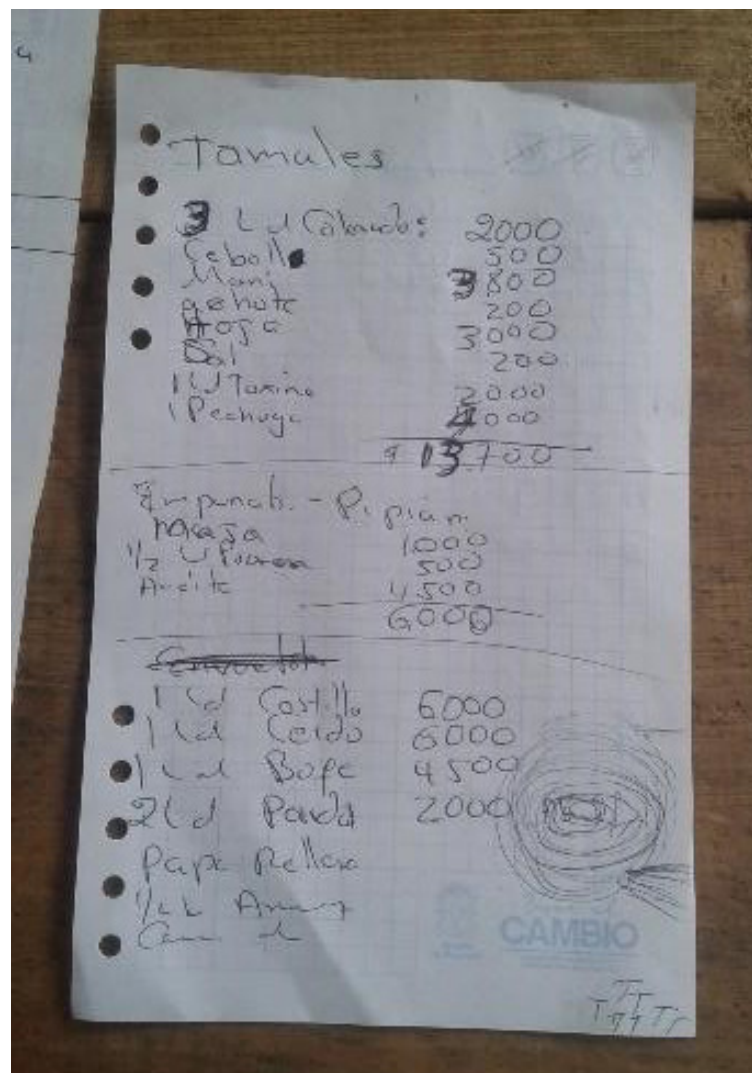 Tamules
3 Ld Colorado: 2000
Cebolla 500
Mani 3800
achote 200
Hoja 3000
Sal 200
1 Ld Toxino 2000
1 Pechuga 4000
$ 13.700
Empanab. - Pipian
Masa 1000
1/2 L 500
Aceite 4500
6000
1 Ld Costilla 6000
1 Ld Cerdo 6000
1 Ld Bofe 4500
2 Ld 2000
Papa Rellena
1/2 L
CAMBIO